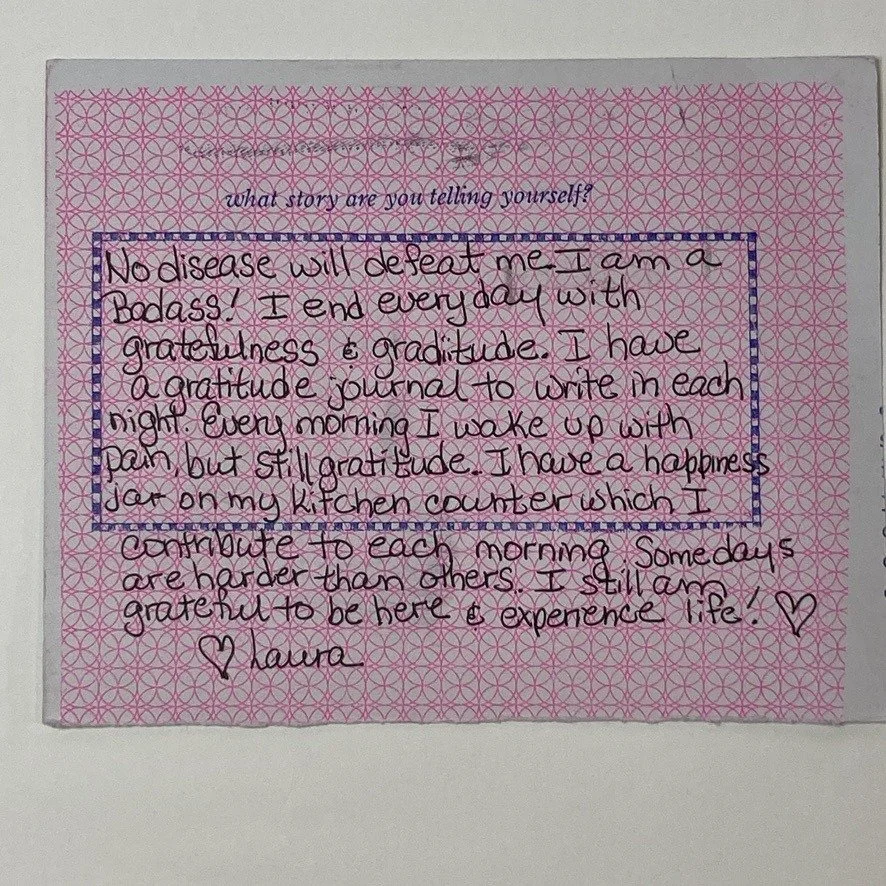 what story are you telling yourself?
No disease will defeat me. I am a
Badass! I end everyday with
gratefulness & graditude. I have
a gratitude journal to write in each
night. Every morning I wake up with
pain, but still gratitude. I have a happiness
jar on my kitchen counter which I
contribute to each morning. Some days
are harder than others. I still am
grateful to be here & experience life! ♡
♡ Laura